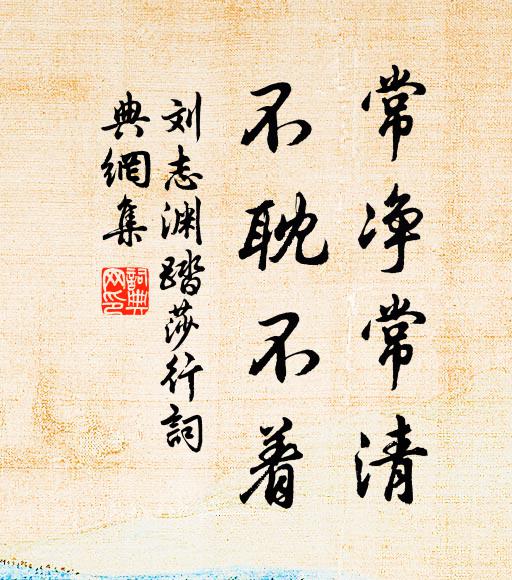 常净常清
不耽不着
刘志渊踏莎行词
典網集
詞典
网印